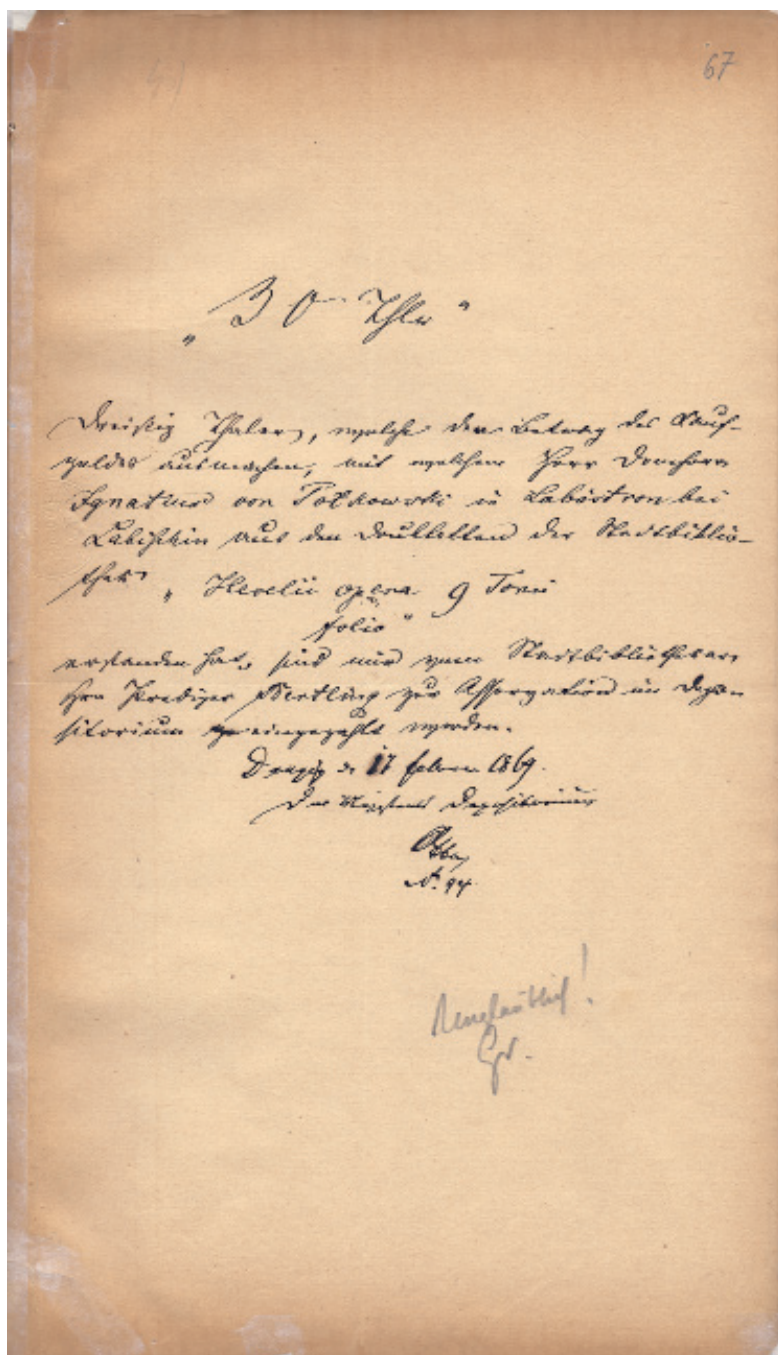 67
„30 Thlr“
Dreißig Thaler, welche den Betrag des Kauf-
geldes ausmachen, mit welchem Herr Domherr
Ignatius von Polkowski in Labiszyn bei
Labischin aus den Doubletten der Stadtbiblio-
thek „Hevelii opera 9 Tomi
folio“
erstanden hat, sind mir vom Stadtbibliothekar
Hrn Prediger Bertling zur Asservation im Depo-
sitorium eingezahlt worden.
Danzig d. 17 Februar 1869.
Der Magistrats Depositorium
N. 94.
Unglaublich!